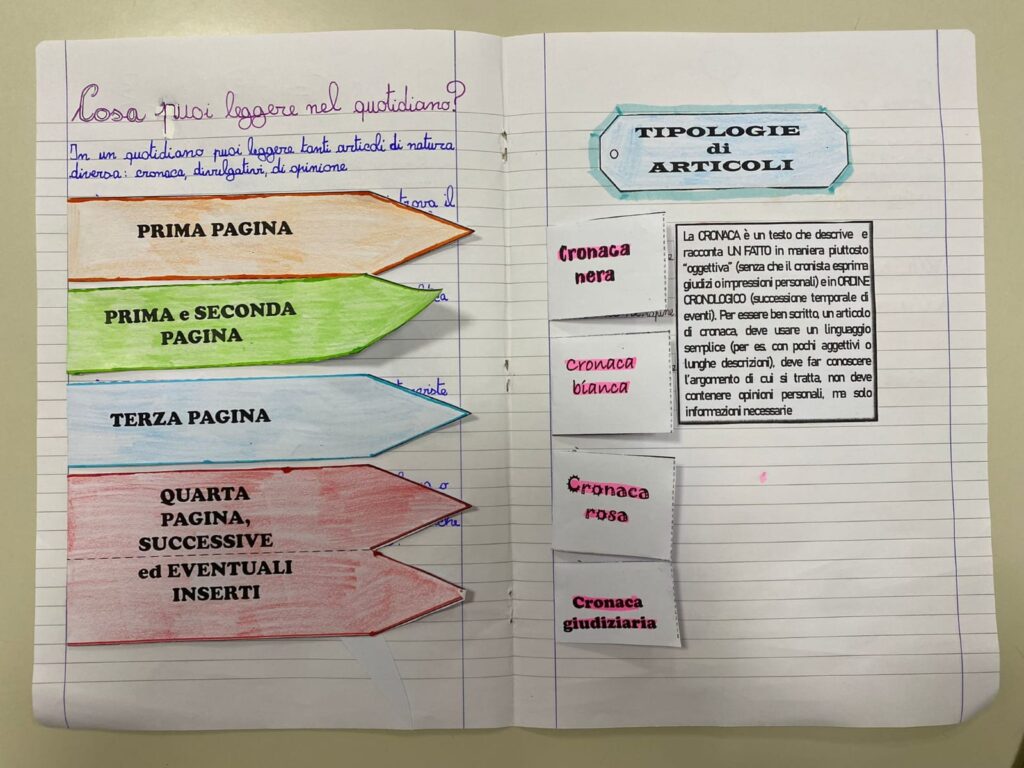 Cosa puoi leggere nel quotidiano?
In un quotidiano puoi leggere tanti articoli di natura
diversa: cronaca, divulgativi, di opinione
trova il
PRIMA PAGINA
PRIMA e SECONDA
PAGINA
TERZA PAGINA
QUARTA
PAGINA,
SUCCESSIVE
ed EVENTUALI
INSERTI
TIPOLOGIE
di
ARTICOLI
Cronaca
nera
Cronaca
bianca
Cronaca
rosa
Cronaca
giudiziaria
La CRONACA è un testo che descrive e
racconta UN FATTO in maniera piuttosto
"oggettiva" (senza che il cronista esprima
giudizi o impressioni personali) e in ORDINE
CRONOLOGICO (successione temporale di
eventi). Per essere ben scritto, un articolo
di cronaca, deve usare un linguaggio
semplice (per es. con pochi aggettivi o
lunghe descrizioni), deve far conoscere
l'argomento di cui si tratta, non deve
contenere opinioni personali, ma solo
informazioni necessarie